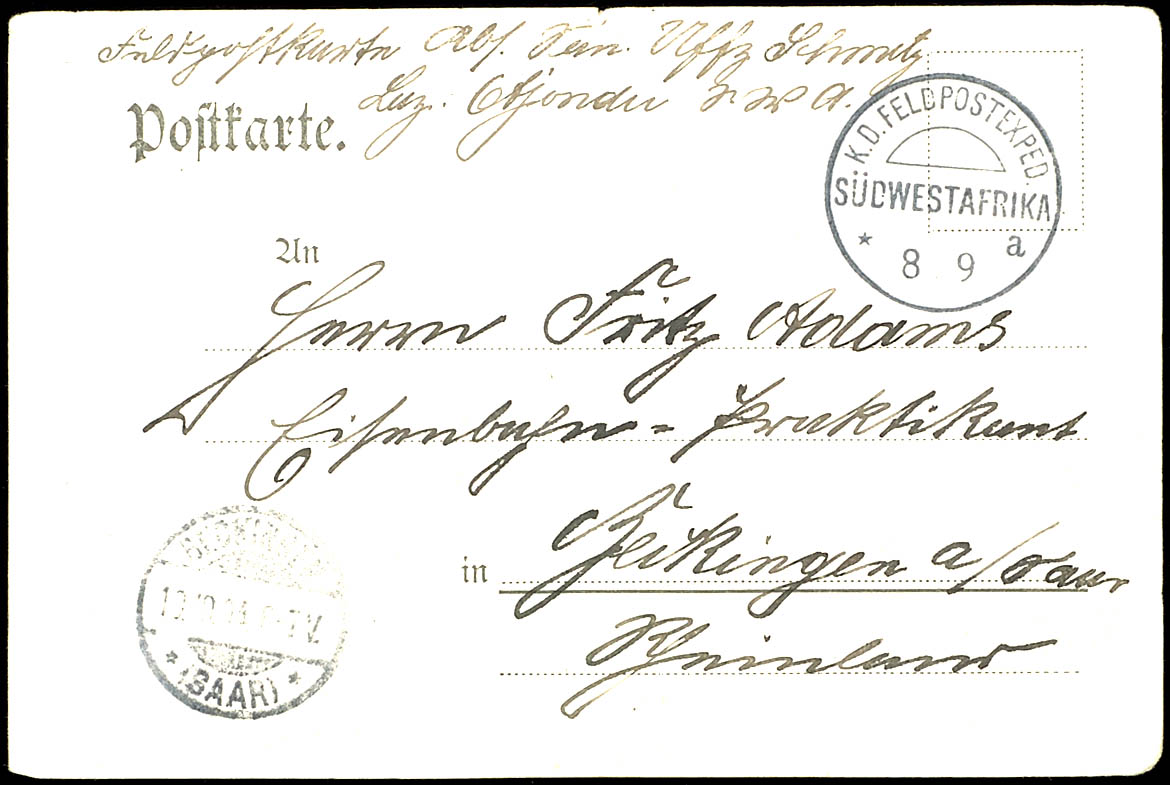 Feldpostkarte Abs. San. Uffz Schmelz
Laz. Otjondu D. S. W. A.
Postkarte.
K.D. FELDPOSTEXPED.
SÜDWESTAFRIKA
* 8 9 a
An
Herrn Fritz Adams
Eisenbahn-Praktikant
in Beckingen a/Saar
Rheinland
(SAAR)